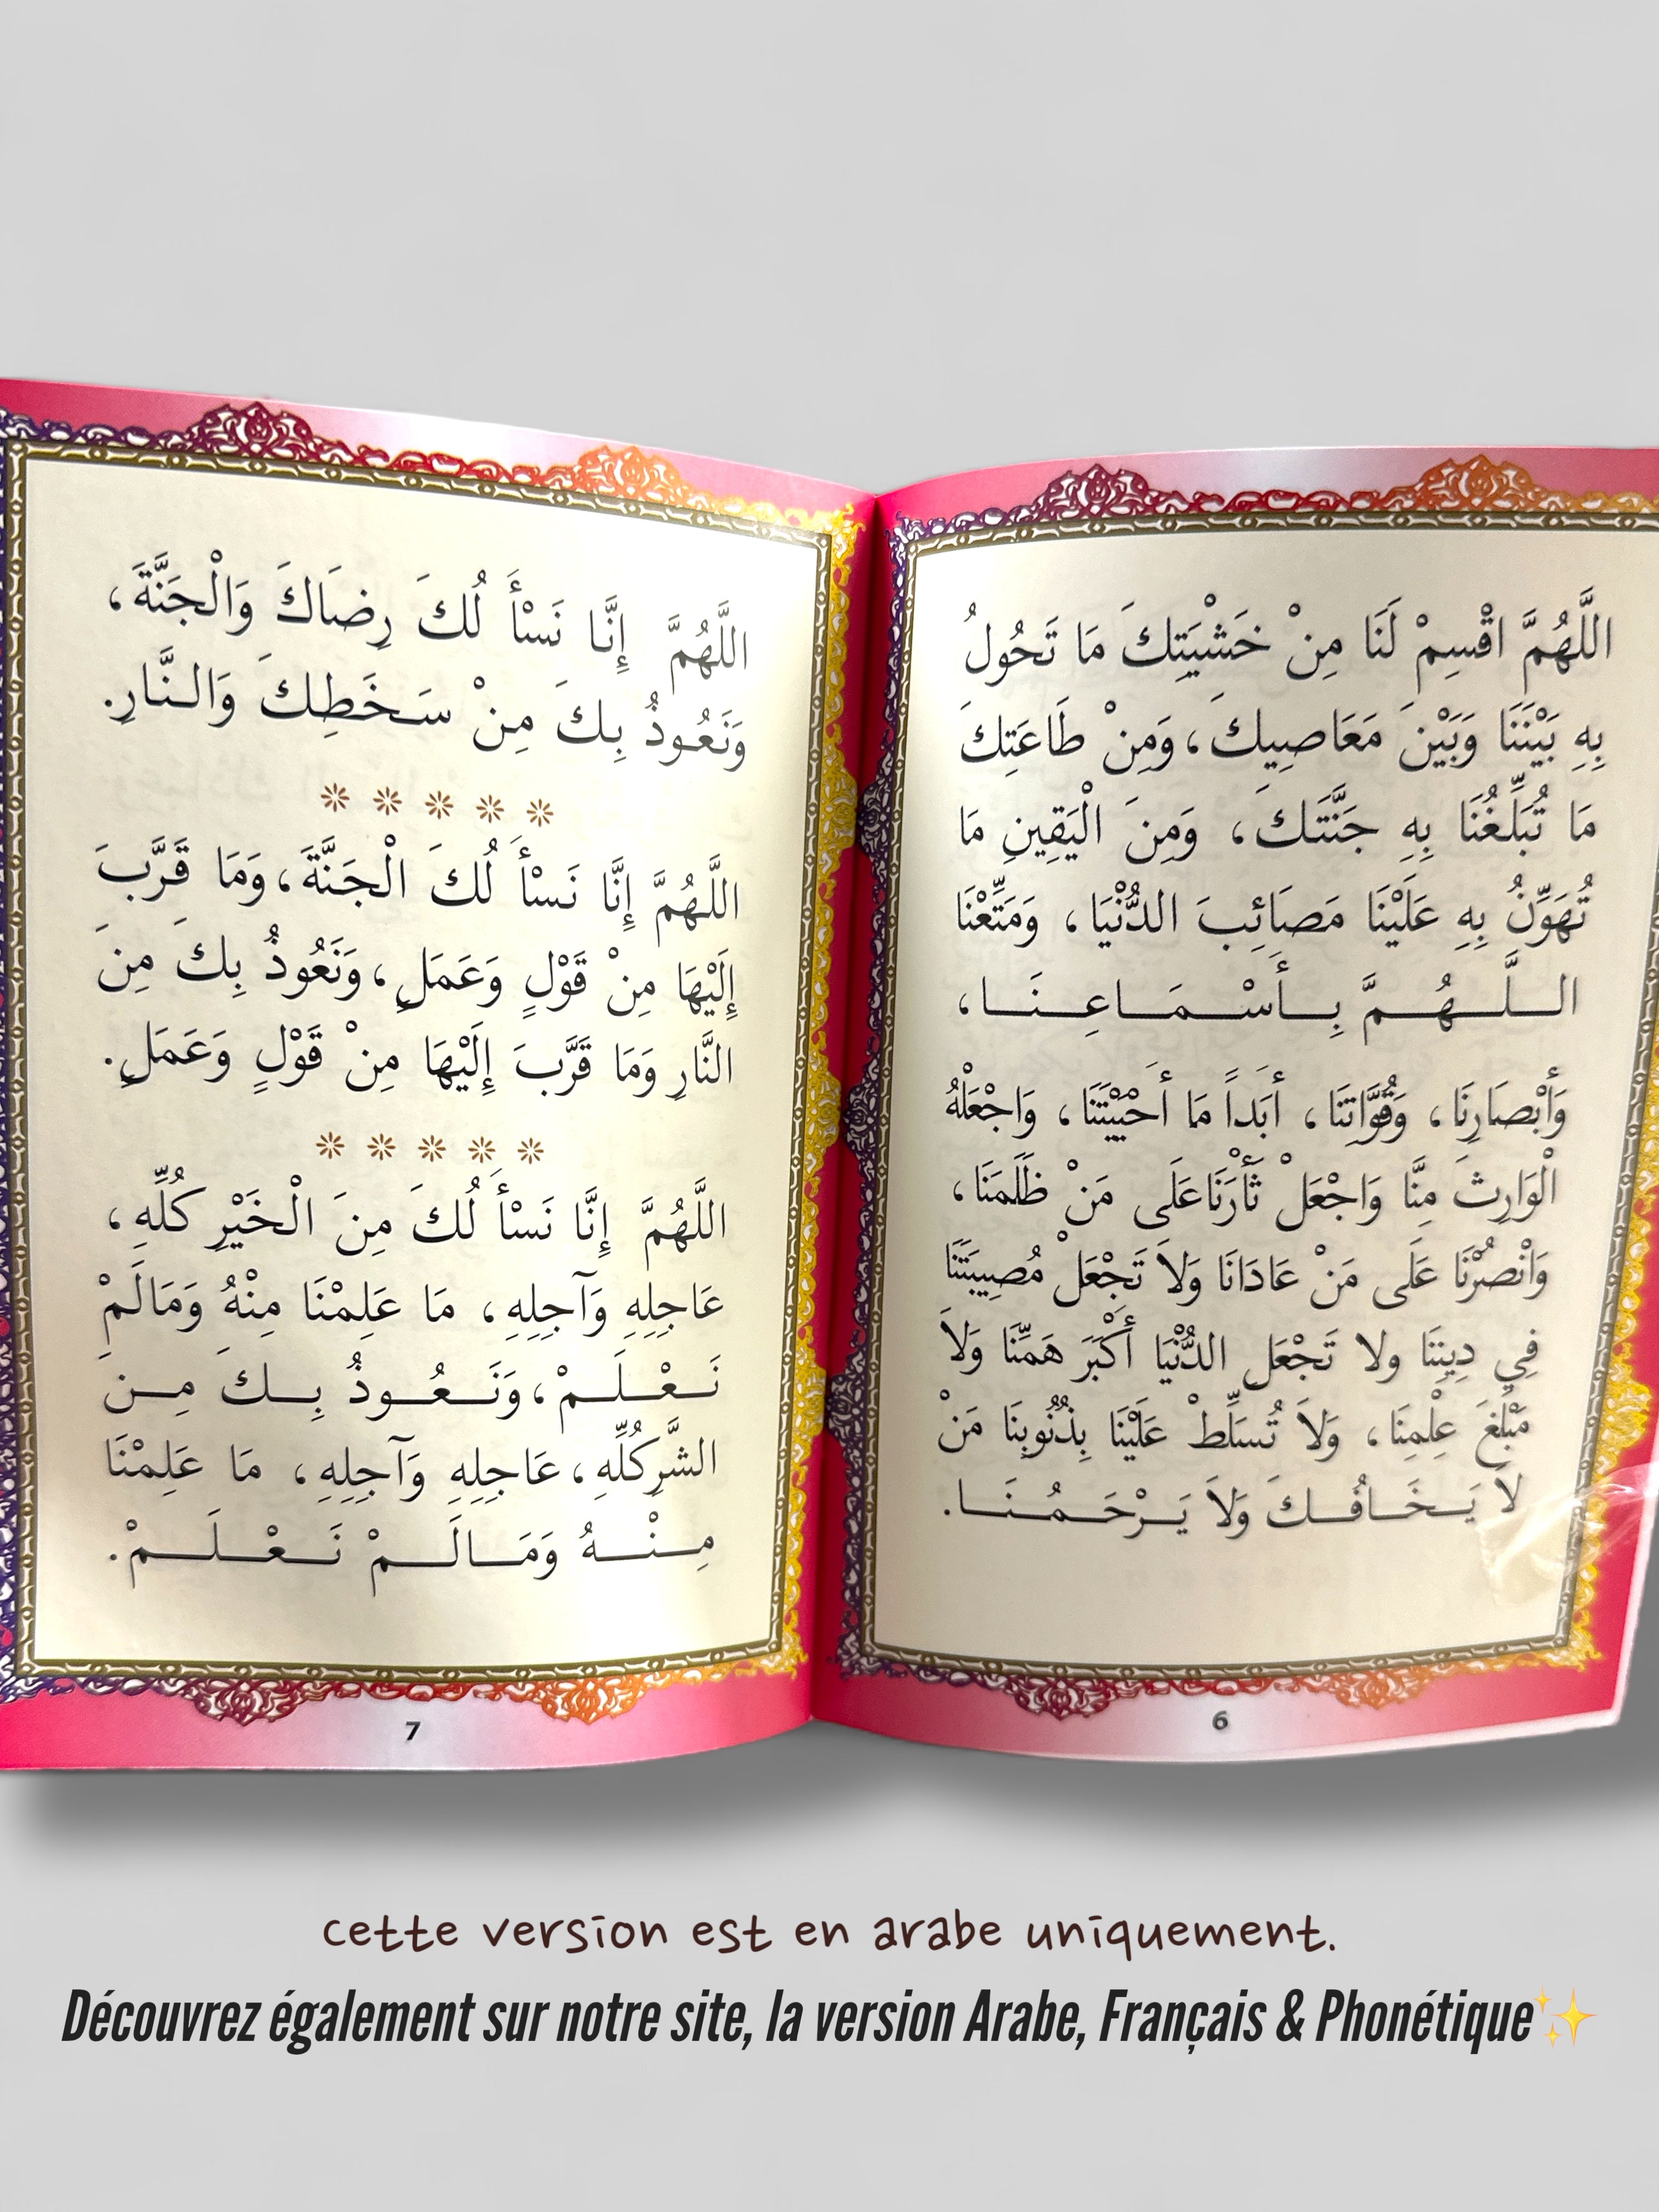 اللَّهُمَّ اقْسِمْ لَنَا مِنْ خَشْيَتِكَ مَا تَحُولُ
بِهِ بَيْنَنَا وَبَيْنَ مَعَاصِيكَ، وَمِنْ طَاعَتِكَ
مَا تُبَلِّغُنَا بِهِ جَنَّتَكَ، وَمِنَ الْيَقِينِ مَا
تُهَوِّنُ بِهِ عَلَيْنَا مَصَائِبَ الدُّنْيَا، وَمَتِّعْنَا
اللَّهُمَّ بِأَسْمَاعِنَا،
وَأَبْصَارِنَا، وَقُوَّاتِنَا، أَبَداً مَا أَحْيَيْتَنَا، وَاجْعَلْهُ
الْوَارِثَ مِنَّا وَاجْعَلْ ثَأْرَنَا عَلَى مَنْ ظَلَمَنَا،
وَانْصُرْنَا عَلَى مَنْ عَادَانَا وَلاَ تَجْعَلْ مُصِيبَتَنَا
فِي دِينِنَا ولا تَجْعَلِ الدُّنْيَا أَكْبَرَ هَمِّنَا وَلاَ
مَبْلَغَ عِلْمِنَا، وَلاَ تُسَلِّطْ عَلَيْنَا بِذُنُوبِنَا مَنْ
لاَ يَخَافُكَ وَلاَ يَرْحَمُنَا.
6
اللَّهُمَّ إِنَّا نَسْأَلُكَ رِضَاكَ وَالْجَنَّةَ،
وَنَعُوذُ بِكَ مِنْ سَخَطِكَ وَالنَّارِ.
اللَّهُمَّ إِنَّا نَسْأَلُكَ الْجَنَّةَ، وَمَا قَرَّبَ
إِلَيْهَا مِنْ قَوْلٍ وَعَمَلٍ، وَنَعُوذُ بِكَ مِنَ
النَّارِ وَمَا قَرَّبَ إِلَيْهَا مِنْ قَوْلٍ وَعَمَلٍ.
اللَّهُمَّ إِنَّا نَسْأَلُكَ مِنَ الْخَيْرِ كُلِّهِ،
عَاجِلِهِ وَآجِلِهِ، مَا عَلِمْنَا مِنْهُ وَمَالَمْ
نَعْلَمْ، وَنَعُوذُ بِكَ مِنَ
الشَّرِ كُلِّهِ، عَاجِلِهِ وَآجِلِهِ، مَا عَلِمْنَا
مِنْهُ وَمَالَمْ نَعْلَمْ.
7
cette version est en arabe uniquement.
Découvrez également sur notre site, la version Arabe, Français & Phonétique✨